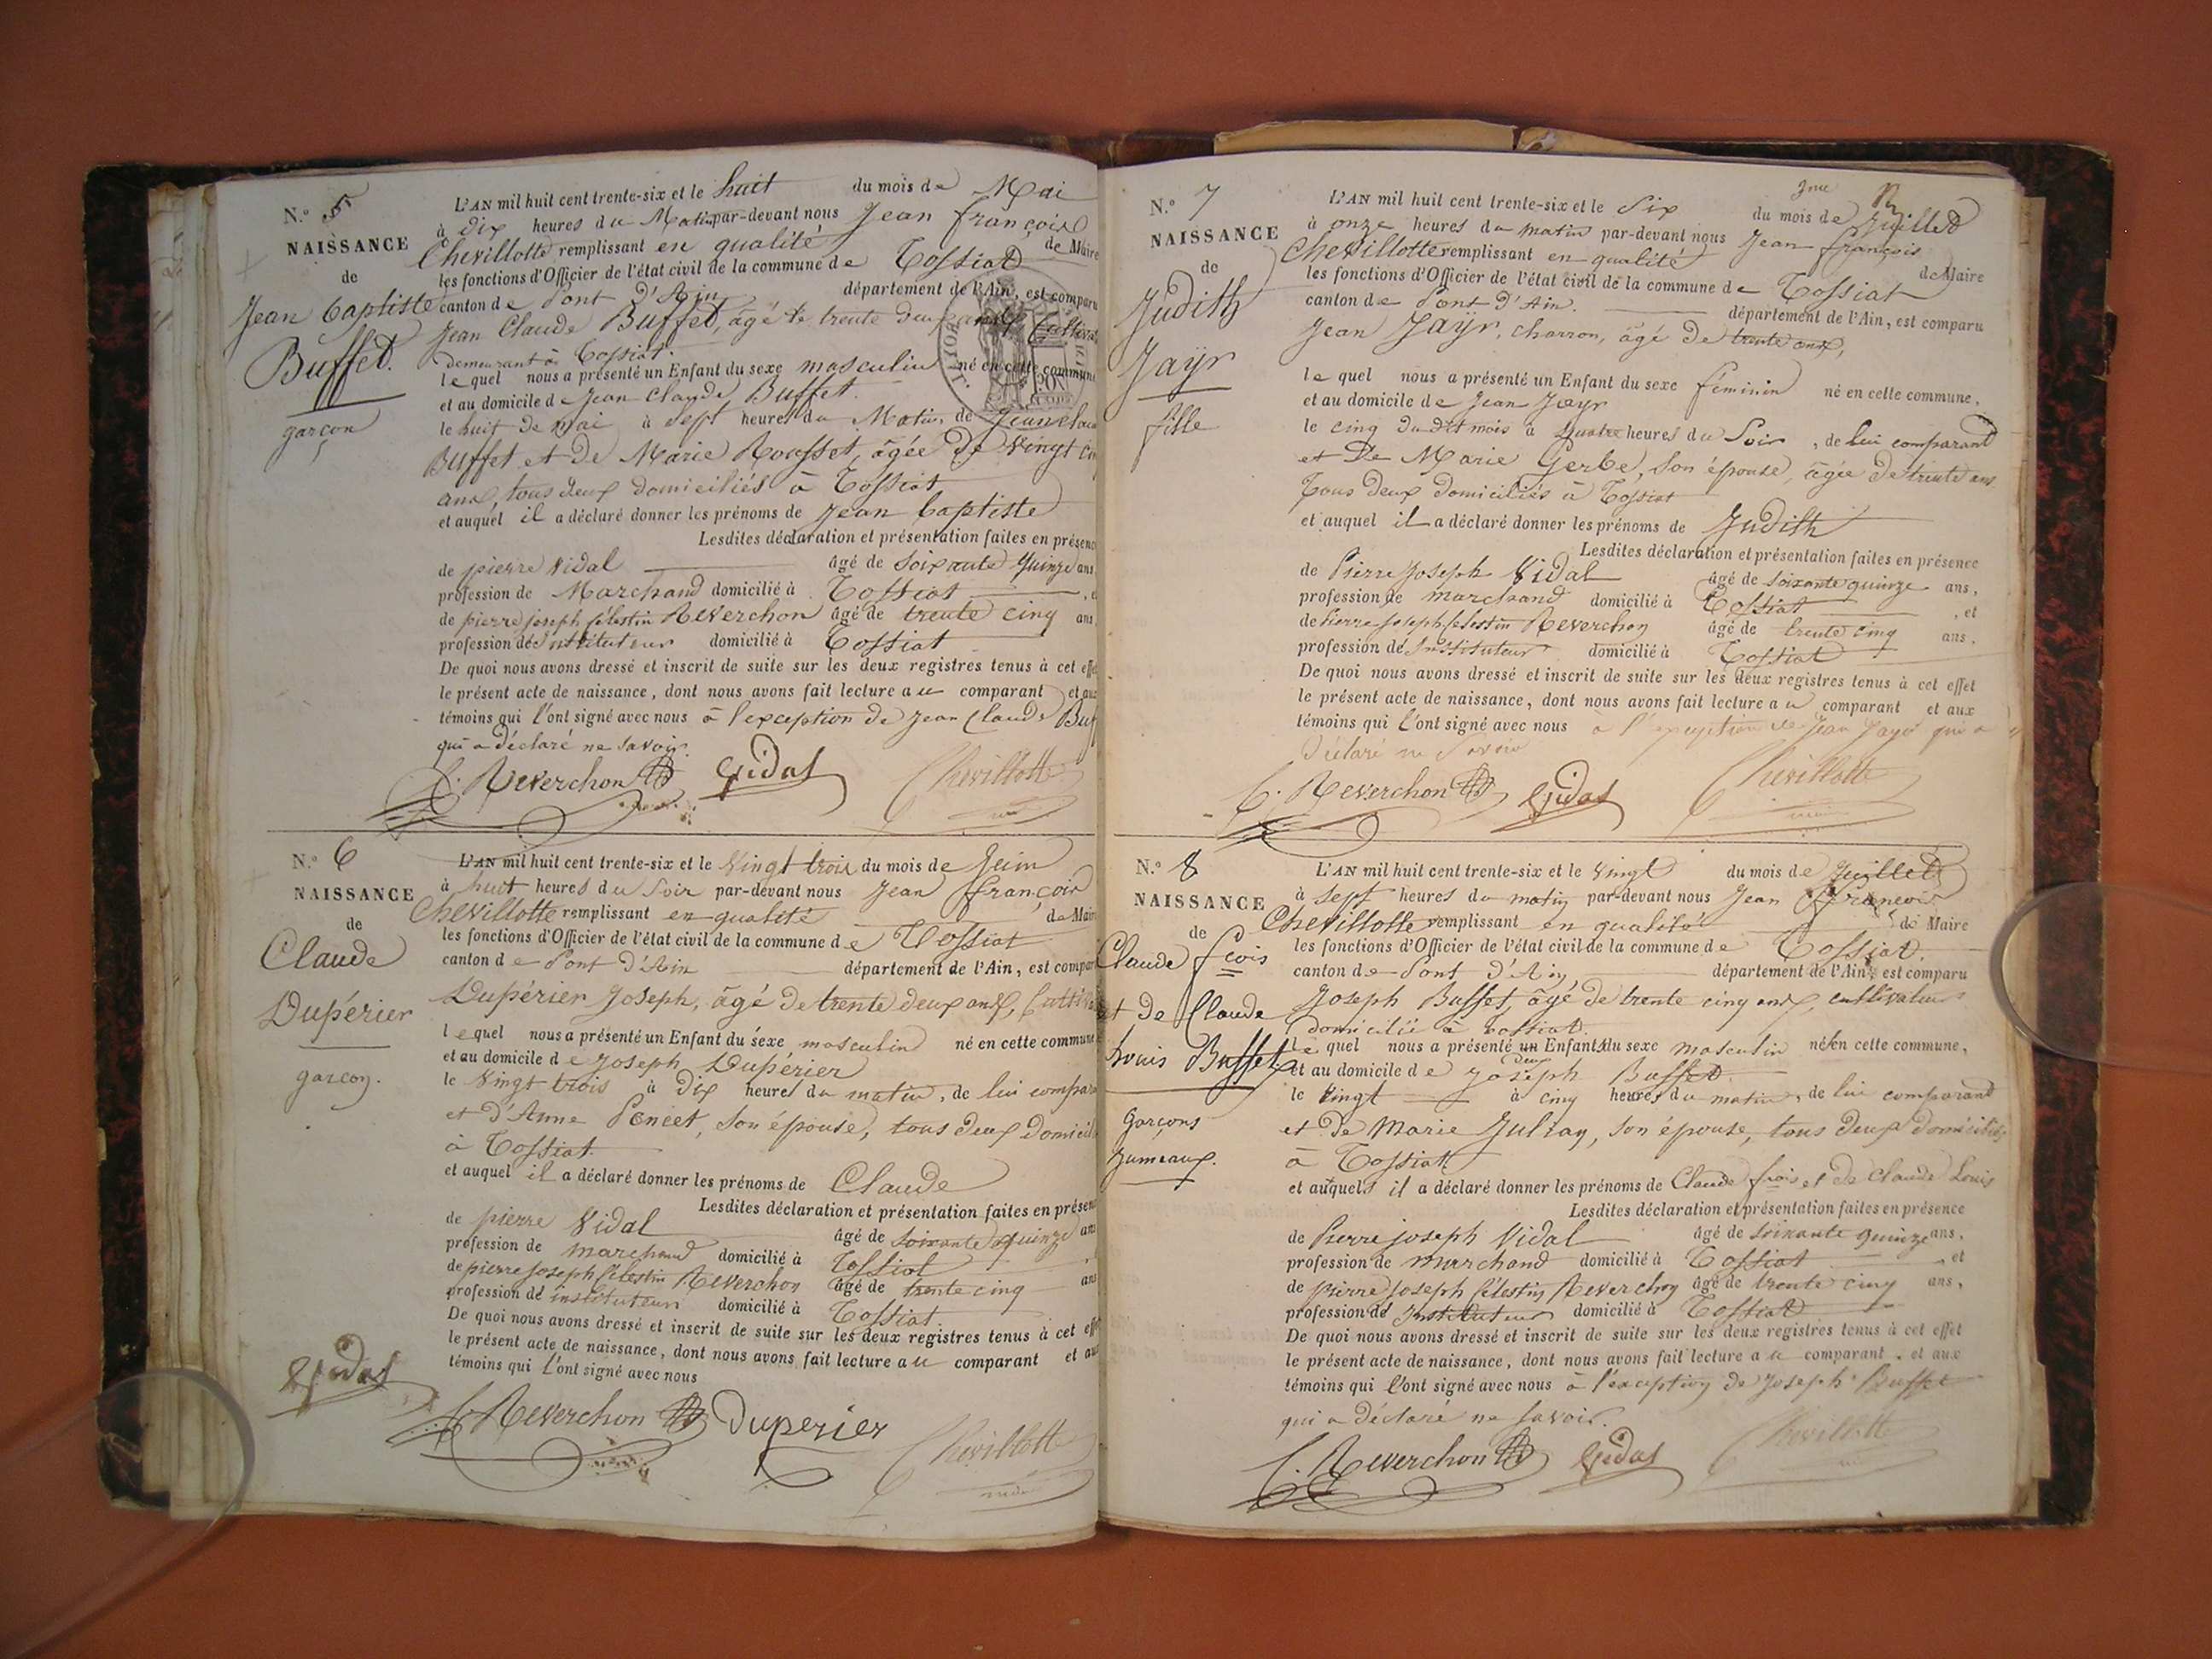 N.° 5
NAISSANCE
de
Jean baptiste
Buffet.
garçon
L'AN mil huit cent trente-six et le huit du mois de Mai
à Dix heures du Matin par-devant nous Jean françois
Chevillotte remplissant en qualité de Maire
les fonctions d'Officier de l'état civil de la commune de Tossiat
canton de Pont D'Ain département de l'Ain, est comparu
Jean Claude Buffet, âgé de trente deux ans,
demeurant à Tossiat.
lequel nous a présenté un Enfant du sexe masculin né en cette commune
et au domicile de Jean Claude Buffet.
le huit de mai à sept heures du Matin, de Jean Clau
Buffet et de Marie Rousset, âgée de Vingt
ans, tous deux domiciliés à Tossiat
et auquel il a déclaré donner les prénoms de Jean baptiste
Lesdites déclaration et présentation faites en présenc
de pierre Vidal âgé de soixante quinze ans
profession de Marchand domicilié à Tossiat
de pierre joseph célestin Reverchon âgé de trente cinq ans
profession de Instituteur domicilié à Tossiat
De quoi nous avons dressé et inscrit de suite sur les deux registres tenus à cet effe
le présent acte de naissance, dont nous avons fait lecture au comparant et aux
témoins qui l'ont signé avec nous à l'exception de Jean Claude Buf
qui a déclaré ne savoir.
C. Reverchon Vidal Chevillotte
N.° 6
NAISSANCE
de
Claude
Dupérier
garçon.
L'AN mil huit cent trente-six et le Vingt trois du mois de Juin
à huit heures du Soir par-devant nous Jean françois
Chevillotte remplissant en qualité de Maire
les fonctions d'Officier de l'état civil de la commune de Tossiat
canton de Pont d'Ain département de l'Ain, est compar
Dupérier Joseph, âgé de trente deux ans,
lequel nous a présenté un Enfant du sexe masculin né en cette commune
et au domicile de Joseph Dupérier
le Vingt trois à Dix heures du matin, de lui compara
et d'Anne Poncet, son épouse, tous deux domicil
à Tossiat.
et auquel il a déclaré donner les prénoms de Claude
Lesdites déclaration et présentation faites en présen
de pierre Vidal âgé de soixante quinze ans
profession de marchand domicilié à Tossiat
de pierre joseph célestin Reverchon âgé de trente cinq ans
profession de instituteur domicilié à Tossiat
De quoi nous avons dressé et inscrit de suite sur les deux registres tenus à cet eff
le présent acte de naissance, dont nous avons fait lecture au comparant et au
témoins qui l'ont signé avec nous
Vidal
C. Reverchon Duperier Chevillotte
N.° 7
NAISSANCE
de
Judith
Jayr
fille
L'AN mil huit cent trente-six et le Six du mois de Juillet
à onze heures du matin par-devant nous Jean françois
Chevillotte remplissant en qualité de Maire
les fonctions d'Officier de l'état civil de la commune de Tossiat
canton de Pont D'Ain. département de l'Ain, est comparu
Jean Jayr, charron, âgé de trente ans,
lequel nous a présenté un Enfant du sexe féminin né en cette commune,
et au domicile de Jean Jayr
le cinq du dit mois à quatre heures du Soir, de lui comparant
et De Marie Gerbe, son épouse, âgée de trente ans
Tous deux domiciliés à Tossiat
et auquel il a déclaré donner les prénoms de Judith
Lesdites déclaration et présentation faites en présence
de Pierre Joseph Vidal âgé de soixante quinze ans,
profession de marchand domicilié à Tossiat, et
de Pierre Joseph Célestin Reverchon âgé de trente cinq ans.
profession de Instituteur domicilié à Tossiat
De quoi nous avons dressé et inscrit de suite sur les deux registres tenus à cet effet
le présent acte de naissance, dont nous avons fait lecture au comparant et aux
témoins qui l'ont signé avec nous à l'exception de Jean Jayr qui a
déclaré ne savoir
C. Reverchon Vidal Chevillotte
N.° 8
NAISSANCE
de
Claude fcois
et de Claude
Louis Buffet
garçons
Jumeaux.
L'AN mil huit cent trente-six et le Vingt du mois de Juillet
à sept heures du matin par-devant nous Jean françois
Chevillotte remplissant en qualité de Maire
les fonctions d'Officier de l'état civil de la commune de Tossiat.
canton de Pont d'Ain département de l'Ain, est comparu
Joseph Buffet, âgé de trente cinq ans, cultivateur
domicilié à tossiat.
lequel nous a présenté un deux Enfants du sexe masculin nés en cette commune,
et au domicile de Joseph Buffet
le Vingt à cinq heures du matin, de lui comparant
et de Marie Jullay, son épouse, tous deux domiciliés
à Tossiat
et auxquels il a déclaré donner les prénoms de Claude fcois et de Claude Louis
Lesdites déclaration et présentation faites en présence
de Pierre joseph Vidal âgé de soixante quinze ans,
profession de marchand domicilié à Tossiat, et
de pierre Joseph célestin Reverchon âgé de trente cinq ans,
profession de Instituteur domicilié à Tossiat
De quoi nous avons dressé et inscrit de suite sur les deux registres tenus à cet effet
le présent acte de naissance, dont nous avons fait lecture au comparant et aux
témoins qui l'ont signé avec nous à l'exception de Joseph Buffet
qui a déclaré ne savoir.
C. Reverchon Vidal Chevillotte